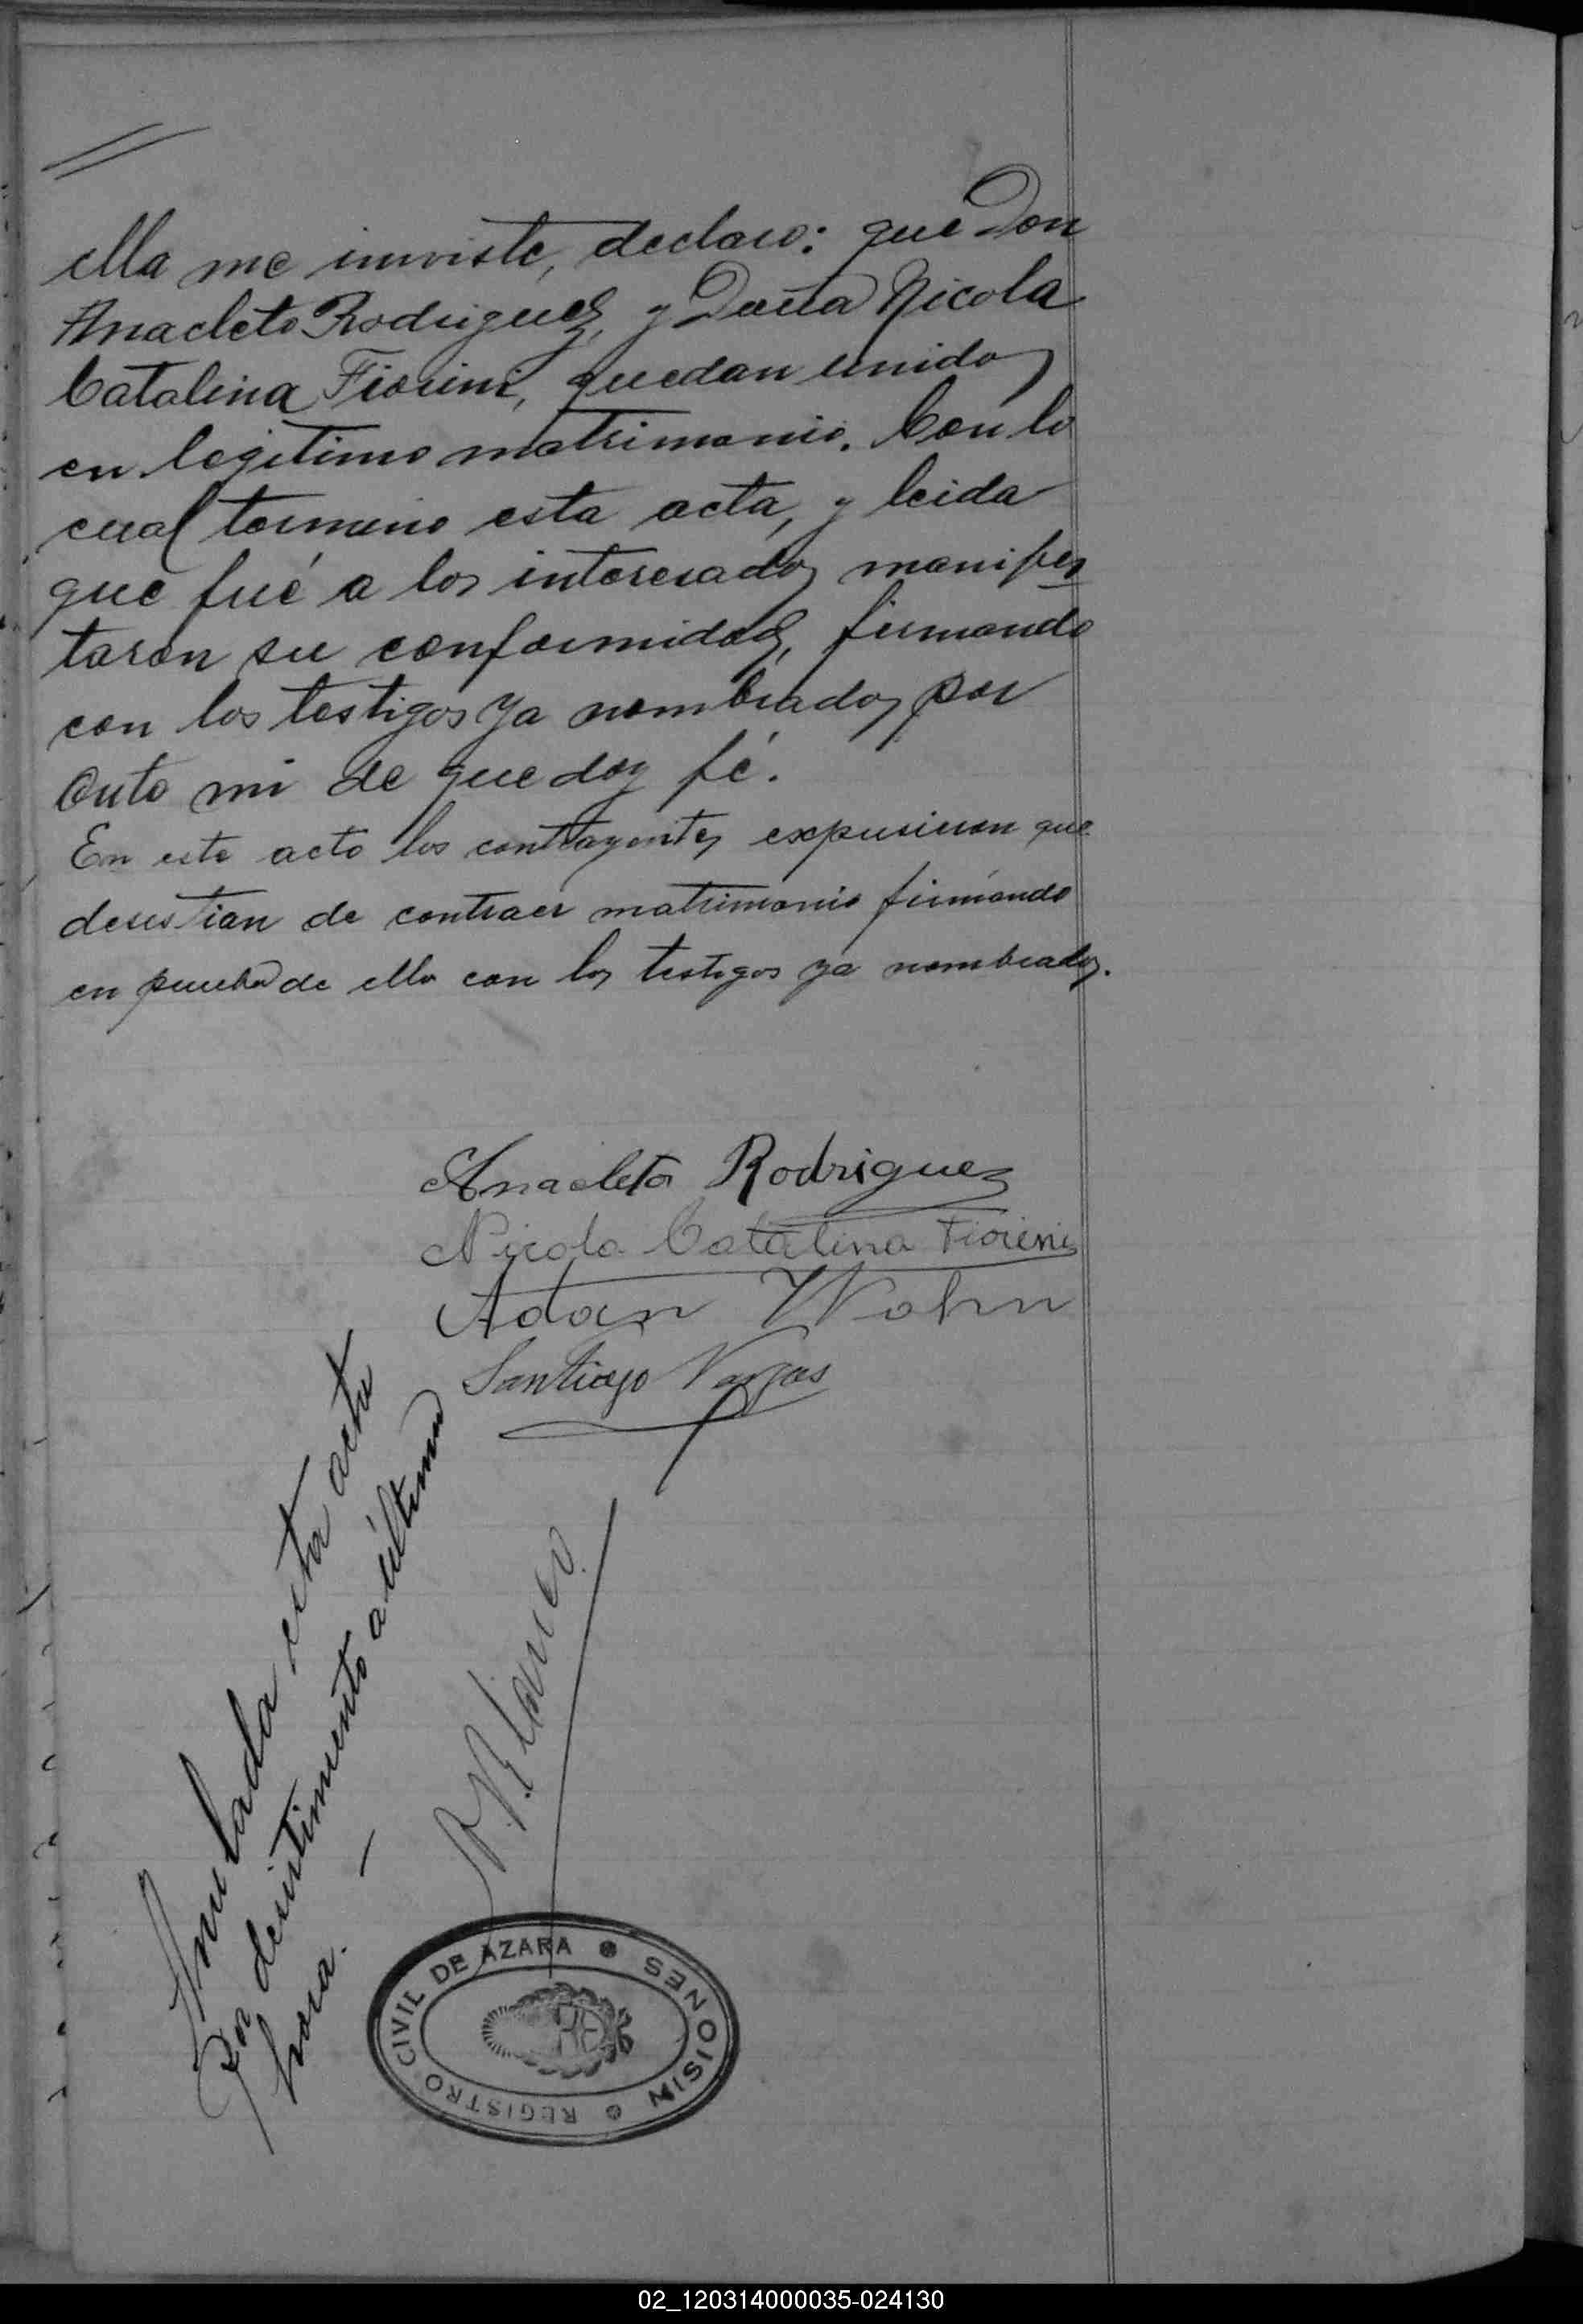 ella me inviste, declaro: que Don
Anacleto Rodriguez, y Doña Nicola
Catalina Fiorini, quedan unidos
en legitimo matrimonio. Con lo
cual termino esta acta, y leida
que fué a los interesados manifes
taron su conformidad, firmando
con los testigos ya nombrados por
Ante mi de que doy fé.
En este acto los contrayentes expusieron que
desistian de contraer matrimonio firmando
en prueba de ello con los testigos ya nombrados.
Anacleto Rodriguez
Nicola Catalina Fiorini
Adan Wohn
Santiago Vargas
Anulada esta acta
Por desistimiento a última
hora. —
Blanco
REGISTRO CIVIL DE AZARA * MISIONES *
02_120314000035-024130